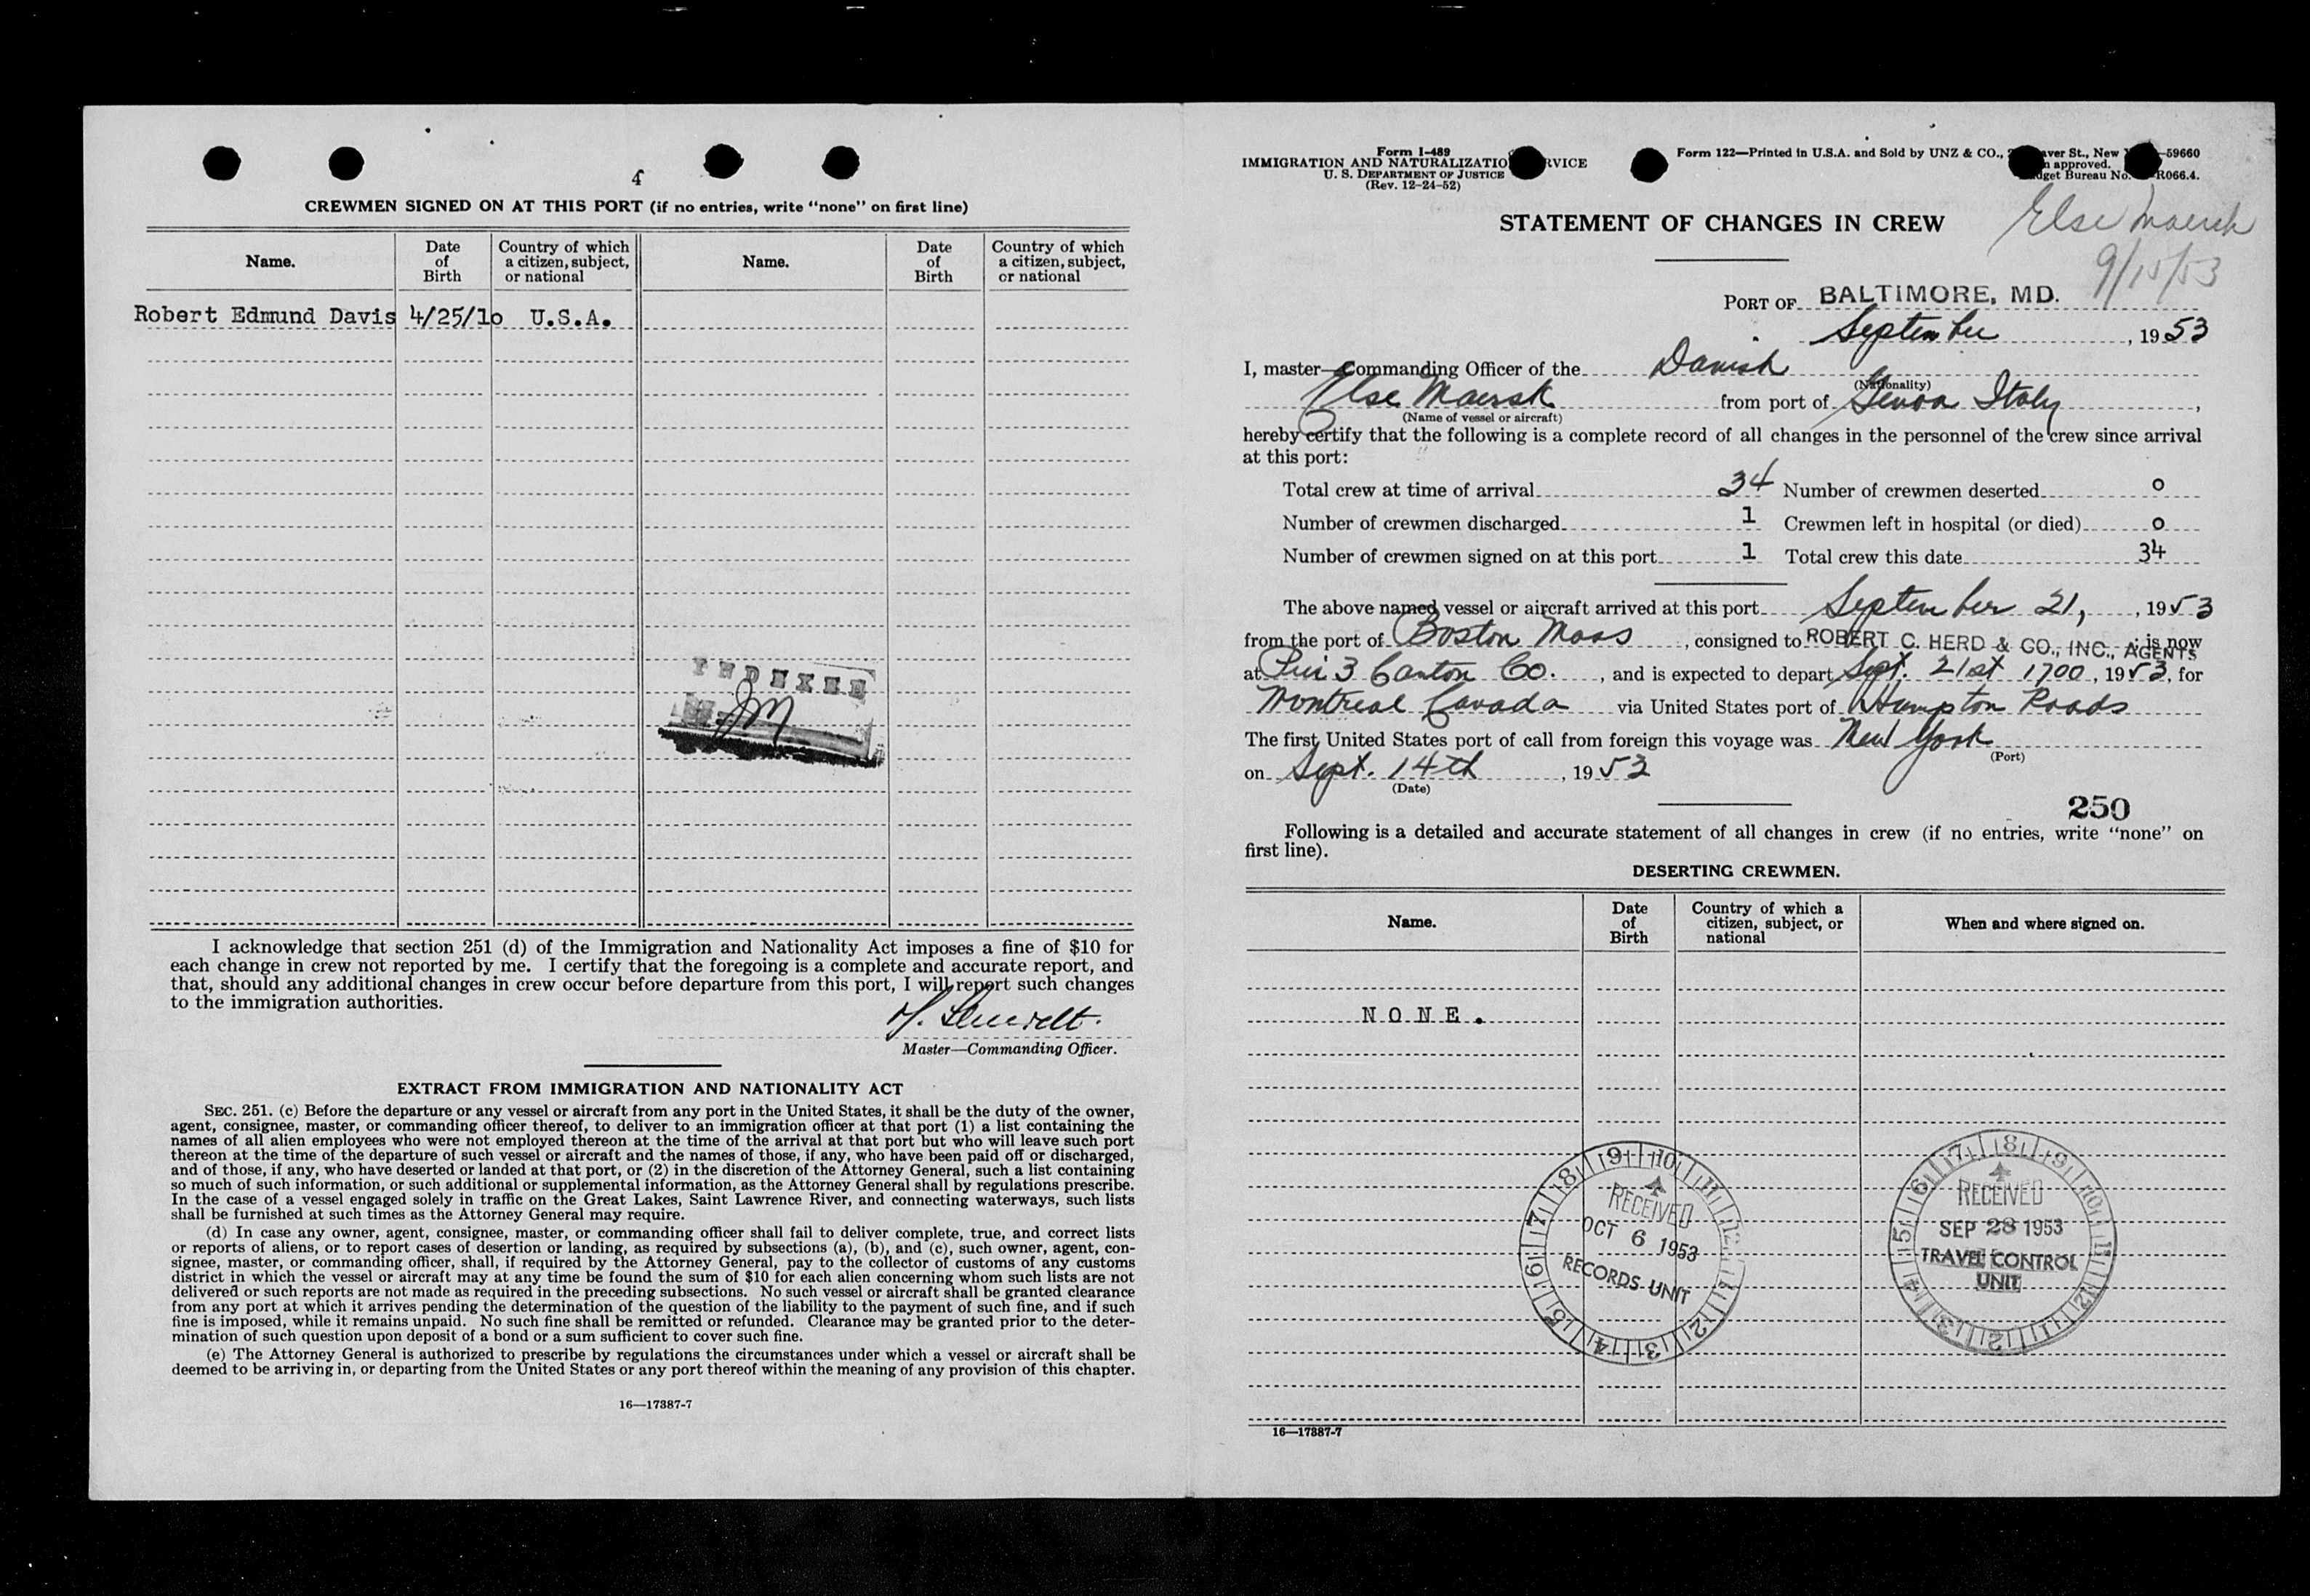 4
CREWMEN SIGNED ON AT THIS PORT (if no entries, write “none” on first line)
Name. Date of Birth Country of which a citizen, subject, or national Name. Date of Birth Country of which a citizen, subject, or national
Robert Edmund Davis 4/25/1o U.S.A.
INDEXED
I acknowledge that section 251 (d) of the Immigration and Nationality Act imposes a fine of $10 for
each change in crew not reported by me. I certify that the foregoing is a complete and accurate report, and
that, should any additional changes in crew occur before departure from this port, I will report such changes
to the immigration authorities.
Master—Commanding Officer.
EXTRACT FROM IMMIGRATION AND NATIONALITY ACT
SEC. 251. (c) Before the departure or any vessel or aircraft from any port in the United States, it shall be the duty of the owner,
agent, consignee, master, or commanding officer thereof, to deliver to an immigration officer at that port (1) a list containing the
names of all alien employees who were not employed thereon at the time of the arrival at that port but who will leave such port
thereon at the time of the departure of such vessel or aircraft and the names of those, if any, who have been paid off or discharged,
and of those, if any, who have deserted or landed at that port, or (2) in the discretion of the Attorney General, such a list containing
so much of such information, or such additional or supplemental information, as the Attorney General shall by regulations prescribe.
In the case of a vessel engaged solely in traffic on the Great Lakes, Saint Lawrence River, and connecting waterways, such lists
shall be furnished at such times as the Attorney General may require.
(d) In case any owner, agent, consignee, master, or commanding officer shall fail to deliver complete, true, and correct lists
or reports of aliens, or to report cases of desertion or landing, as required by subsections (a), (b), and (c), such owner, agent, con-
signee, master, or commanding officer, shall, if required by the Attorney General, pay to the collector of customs of any customs
district in which the vessel or aircraft may at any time be found the sum of $10 for each alien concerning whom such lists are not
delivered or such reports are not made as required in the preceding subsections. No such vessel or aircraft shall be granted clearance
from any port at which it arrives pending the determination of the question of the liability to the payment of such fine, and if such
fine is imposed, while it remains unpaid. No such fine shall be remitted or refunded. Clearance may be granted prior to the deter-
mination of such question upon deposit of a bond or a sum sufficient to cover such fine.
(e) The Attorney General is authorized to prescribe by regulations the circumstances under which a vessel or aircraft shall be
deemed to be arriving in, or departing from the United States or any port thereof within the meaning of any provision of this chapter.
16—17387-7
Form I-489
IMMIGRATION AND NATURALIZATIO RVICE
U. S. DEPARTMENT OF JUSTICE
(Rev. 12-24-52)
Form 122—Printed in U.S.A. and Sold by UNZ & CO., aver St., New —59660
approved.
get Bureau No. R066.4.
STATEMENT OF CHANGES IN CREW
Else Maersk
9/15/53
PORT OF BALTIMORE, MD.
September, 1953
I, master—Commanding Officer of the Danish
(Nationality)
Else Maersk from port of Genoa Italy,
(Name of vessel or aircraft)
hereby certify that the following is a complete record of all changes in the personnel of the crew since arrival
at this port:
Total crew at time of arrival 34 Number of crewmen deserted 0
Number of crewmen discharged 1 Crewmen left in hospital (or died) 0
Number of crewmen signed on at this port 1 Total crew this date 34
The above named vessel or aircraft arrived at this port September 21, , 1953
from the port of Boston Mass, consigned to ROBERT C. HERD & CO., INC., AGENTS; is now
at Pier 3 Canton Co., and is expected to depart Sept. 21st 1700, 1953, for
Montreal Canada via United States port of Hampton Roads
The first United States port of call from foreign this voyage was New York
(Port)
on Sept. 14th, 1953
(Date)
250
Following is a detailed and accurate statement of all changes in crew (if no entries, write “none” on
first line).
DESERTING CREWMEN.
Name. Date of Birth Country of which a citizen, subject, or national When and where signed on.
NONE.
9 10 11 12 1 2 3 4 5 6 7 8
RECEIVED
OCT 6 1953
RECORDS UNIT
8 9 10 11 12 1 2 3 4 5 6 7
RECEIVED
SEP 28 1953
TRAVEL CONTROL
UNIT
16—17387-7